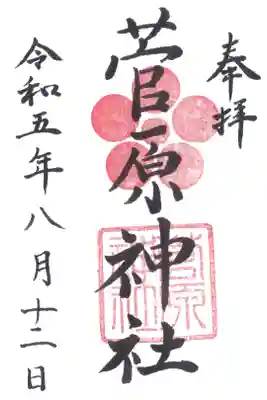 奉拝
菅原神社
令和五年八月十二日
菅原神社